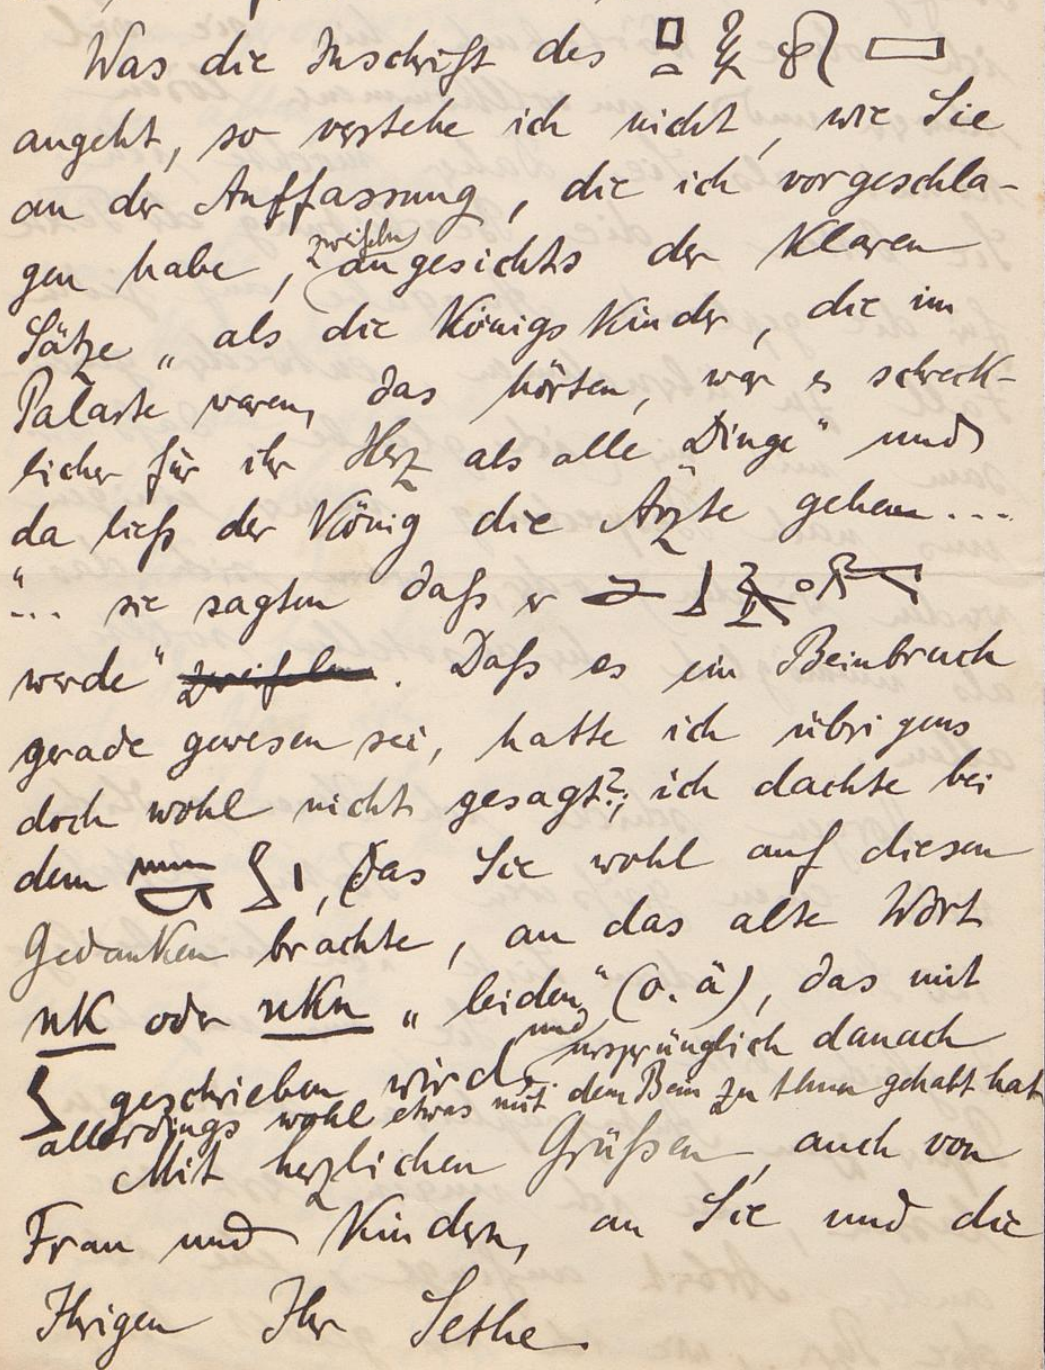 Was die Inschrift des
angeht, so verstehe ich nicht, wie Sie
an der Auffassung, die ich vorgeschla-
gen habe, zweifeln angesichts der klaren
Sätze „als die Königskinder, die im
Palaste waren, das hörten, war es schreck-
licher für ihr Herz als alle Dinge“ und
da ließ der König die Ärzte gehen ...
„... sie sagten daß er
werde“ zweifeln. Daß es ein Beinbruch
gerade gewesen sei, hatte ich übrigens
doch wohl nicht gesagt?; ich dachte bei
dem , das Sie wohl auf diesen
Gedanken brachte, an das alte Wort
nk oder nkn „leiden“ (o. ä), das mit
geschrieben wird und ursprünglich danach
allerdings wohl etwas mit dem Bein zu thun gehabt hat
Mit herzlichen Grüßen, auch von
Frau und Kindern, an Sie und die
Ihrigen Ihr Sethe